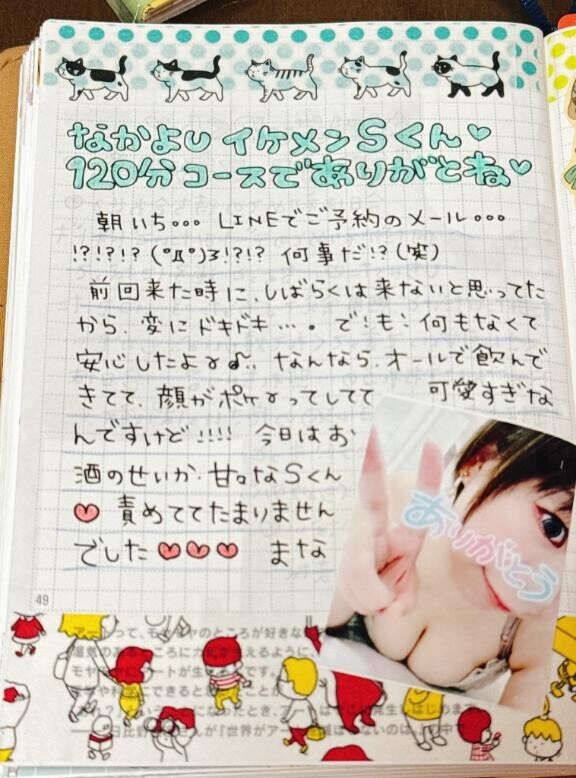 なかよしイケメンSくん♡
120分コースでありがとね♡
朝いち… LINEでご予約のメール…
!?!?!?(°Д°)3!?!? 何事だ!?(笑)
前回来た時に、しばらくは来ないと思ってた
から、変にドキドキ…。で!も!何もなくて
安心したよ〜♪。なんなら、オールで飲んで
きてて、顔がポケ〜ってしてて 可愛すぎな
んですけど!!!! 今日はお
酒のせいか、甘々なSくん
♡責めててたまりません
でした♡♡♡ まな
ありがとう
49
アートって、モヤモヤのところが好きな